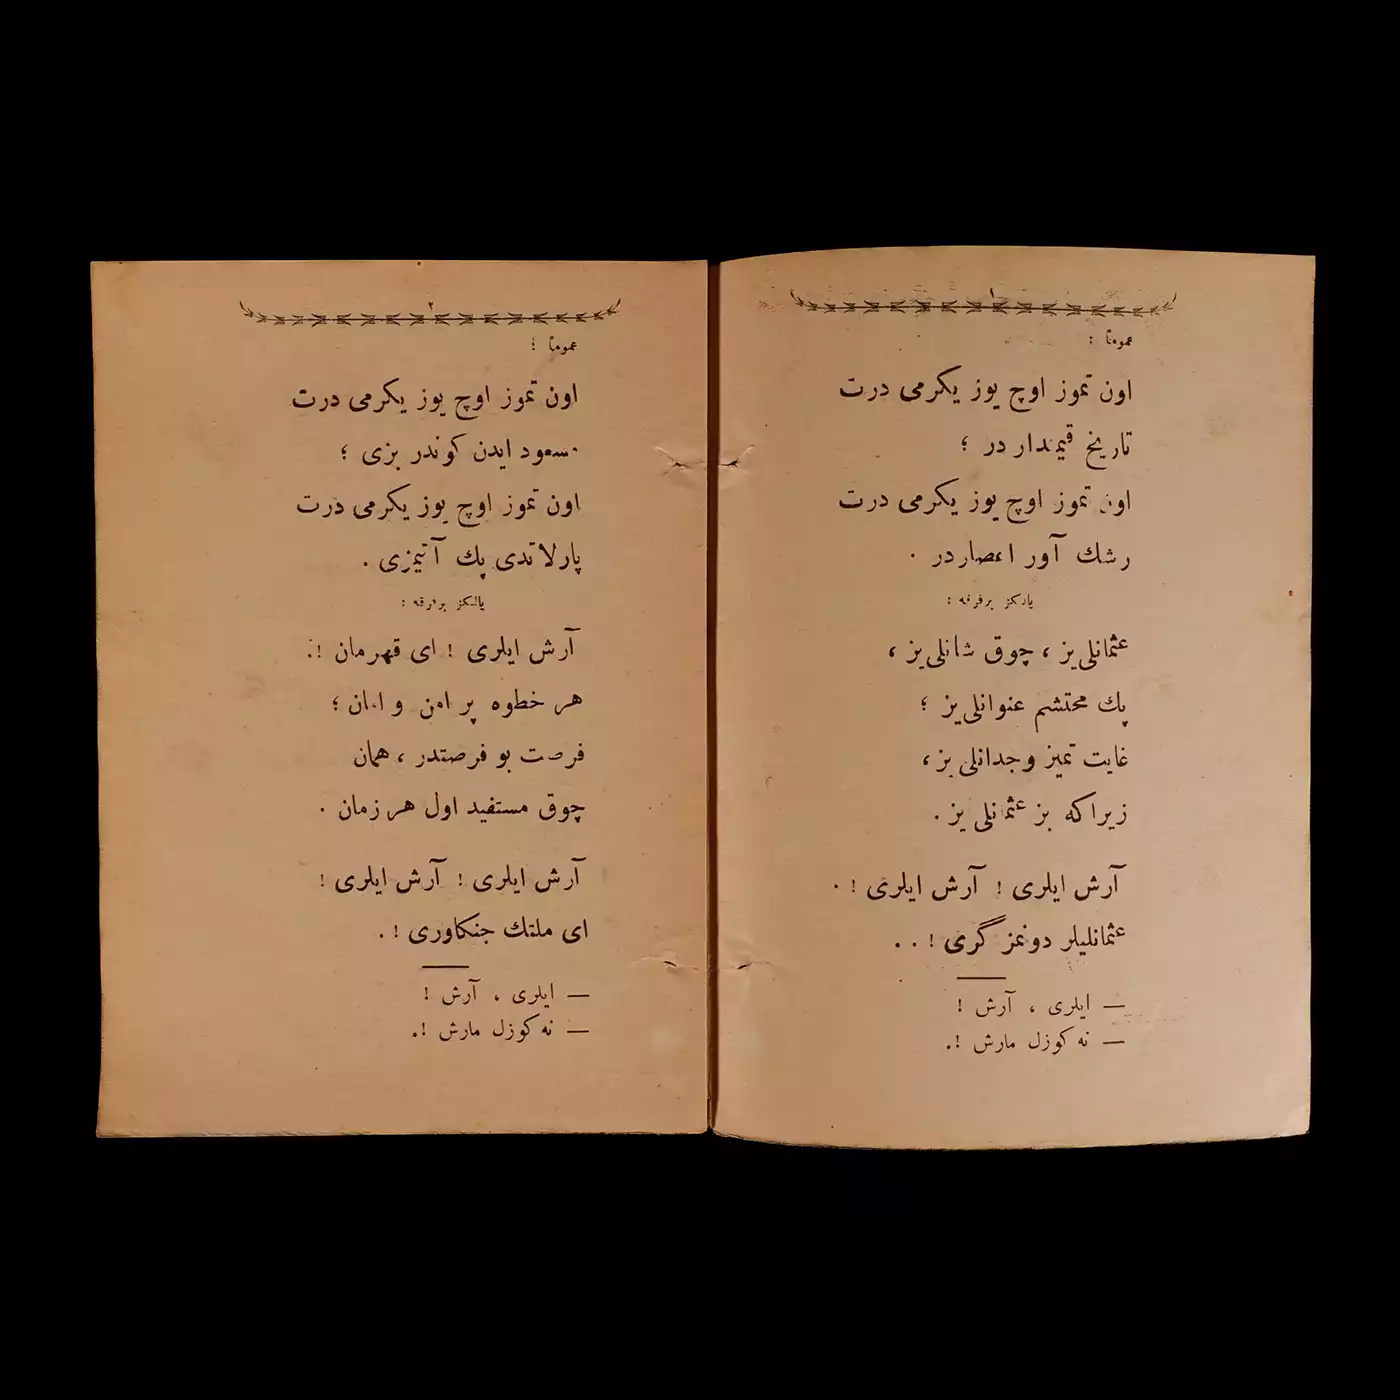 ١
عموماً :
اون تموز اوچ يوز يكرمی درت
تاريخ قيمتدار در ؛
اون تموز اوچ يوز يكرمی درت
رشك آور اعصار در .
يالكز بر فرقه :
عثمانلی‌يز ، چوق شانلی‌يز ،
پك محتشم عنوانلی‌يز ؛
غايت تميز وجدانلی‌يز ،
زيرا كه بز عثمانلی‌يز .
آرش ايلری ! آرش ايلری ! .
عثمانليلر دونمز گری ! . .
— ايلری ، آرش !
— نه كوزل مارش !.
٢
عموماً :
اون تموز اوچ يوز يكرمی درت
مسعود ايدن كوندر بزی ؛
اون تموز اوچ يوز يكرمی درت
پارلاتدی پك آتيمزی .
يالكز بر فرقه :
آرش ايلری ! ای قهرمان !.
هر خطوه پر امن و امان ؛
فرصت بو فرصتدر ، همان
چوق مستفيد اول هر زمان .
آرش ايلری ! آرش ايلری !
ای ملتك جنكاوری ! .
— ايلری ، آرش !
— نه كوزل مارش !.